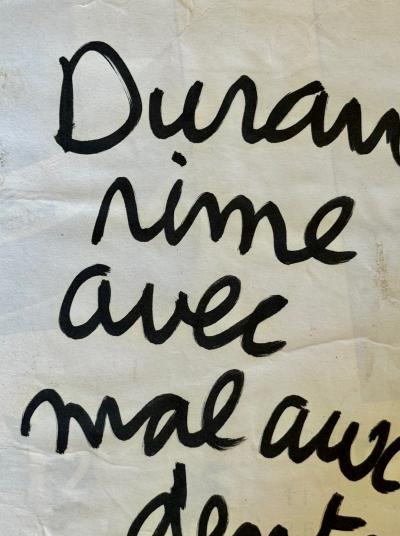 Duran
rime
avec
mal aux
dent